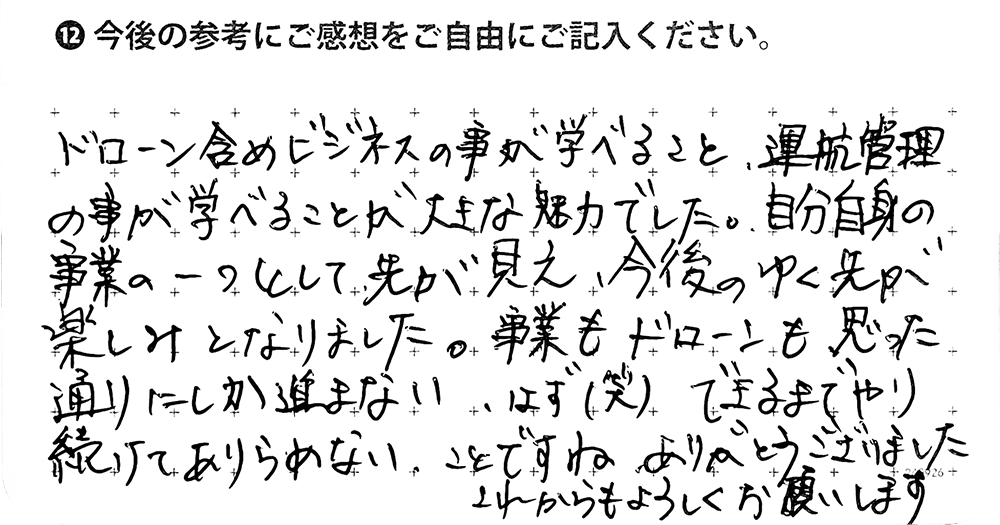 ⓬ 今後の参考にご感想をご自由にご記入ください。
ドローン含めビジネスの事が学べること、運航管理
の事が学べることが大きな魅力でした。自分自身の
事業の一つとして先が見え、今後のゆく先が
楽しみとなりました。事業もドローンも思った
通りにしか進まない、はず(笑) できるまでやり
続けてありらめない、ことですね ありがとうございました
これからもよろしくお願いします